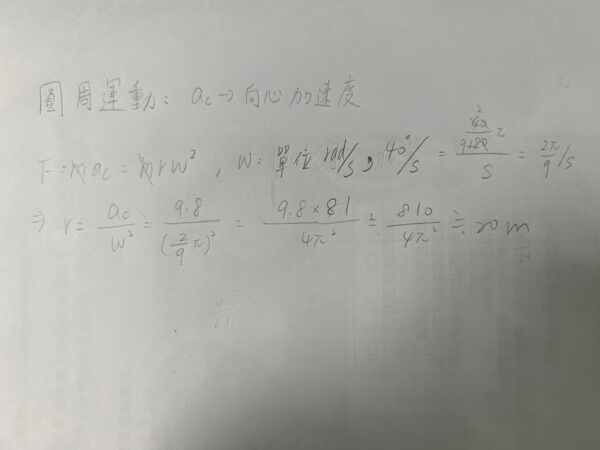 圓周運動: ac→向心加速度
F=mac=mrw², w:單位rad/s, 40°/s = (40/180 π)/s = 2π/9 /s
⇒ r = ac/w² = 9.8/(2/9 π)² = 9.8×81/4π² ≒ 810/4π² ≒ 20m